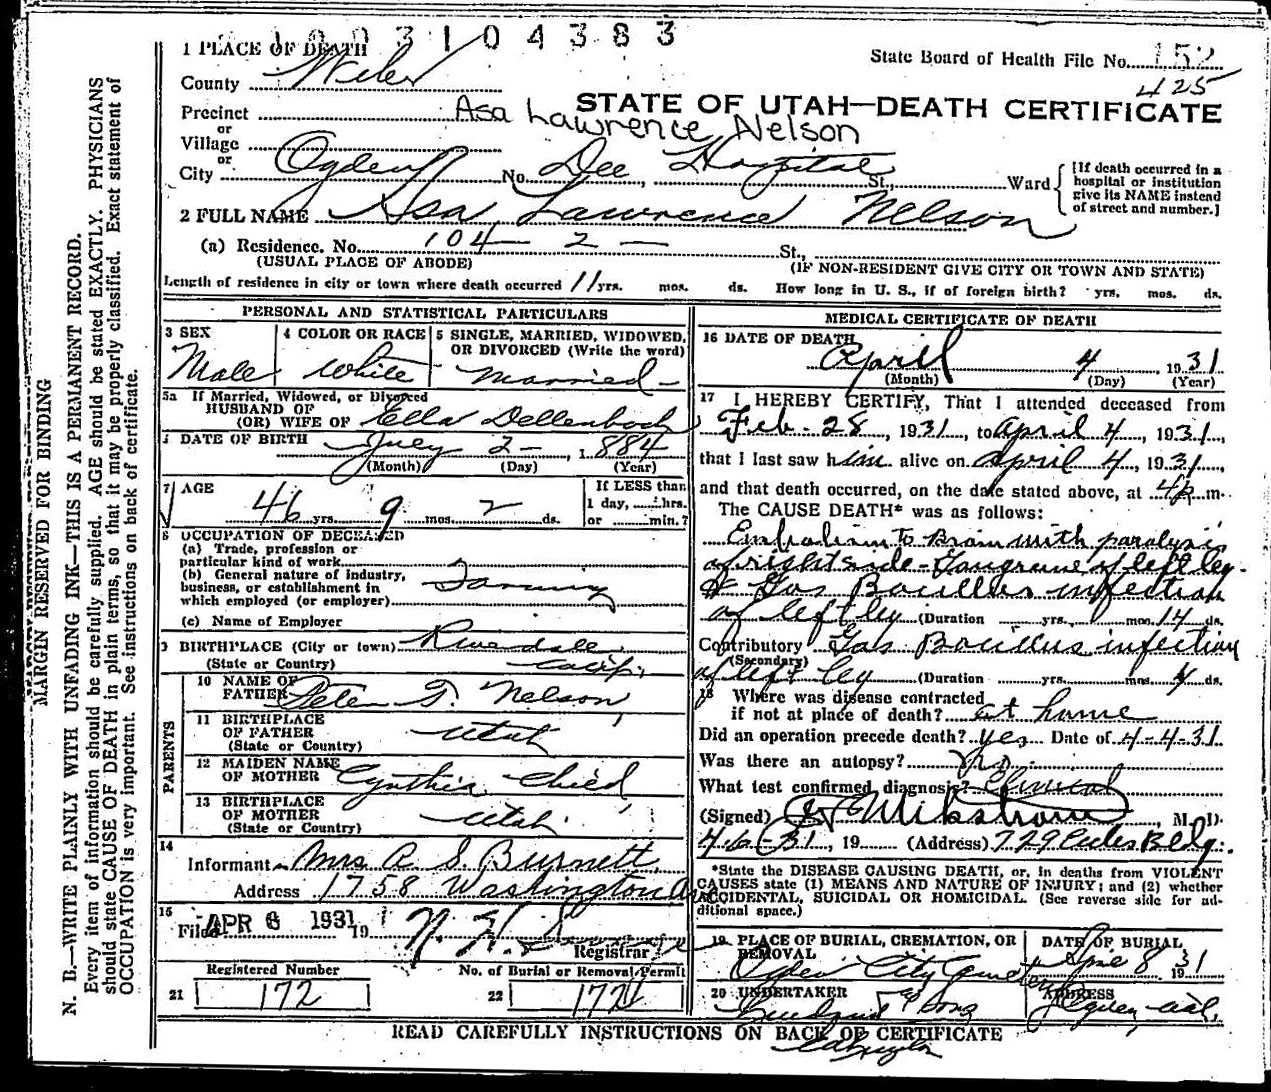 1003104383
1 PLACE OF DEATH
State Board of Health File No. 152
425
County Weber
STATE OF UTAH—DEATH CERTIFICATE
Precinct
Asa Lawrence Nelson
or
Village
or
City Ogden No. Dee Hospital St., Ward
[If death occurred in a
hospital or institution
give its NAME instead
of street and number.]
2 FULL NAME Asa Lawrence Nelson
(a) Residence. No. 104 - 2 - St.,
(USUAL PLACE OF ABODE) (IF NON-RESIDENT GIVE CITY OR TOWN AND STATE)
Length of residence in city or town where death occurred 11 yrs. mos. ds. How long in U. S., if of foreign birth? yrs. mos. ds.
PERSONAL AND STATISTICAL PARTICULARS
3 SEX
Male
4 COLOR OR RACE
White
5 SINGLE, MARRIED, WIDOWED,
OR DIVORCED (Write the word)
Married
5a If Married, Widowed, or Divorced
HUSBAND OF
(OR) WIFE OF Ella Dellenbach
DATE OF BIRTH July 2 - , 1884
(Month) (Day) (Year)
7 AGE
46 yrs. 9 mos. 2 ds.
If LESS than
1 day, hrs.
or min.?
8 OCCUPATION OF DECEASED
(a) Trade, profession or
particular kind of work
(b) General nature of industry,
business, or establishment in
which employed (or employer)
(c) Name of Employer
9 BIRTHPLACE (City or town) Riverdale
(State or Country)
PARENTS
10 NAME OF
FATHER Peter Nelson
11 BIRTHPLACE
OF FATHER Utah
(State or Country)
12 MAIDEN NAME
OF MOTHER Cynthia
13 BIRTHPLACE
OF MOTHER Utah
(State or Country)
14
Informant Mrs A. S. Burnett
Address 1758 Washington Ave
15
Filed APR 6 1931 19 N. H.
Registrar
Registered Number No. of Burial or Removal Permit
21 172 22 172
MEDICAL CERTIFICATE OF DEATH
16 DATE OF DEATH
April 4, 1931
(Month) (Day) (Year)
17 I HEREBY CERTIFY, That I attended deceased from
Feb. 28, 1931, to April 4, 1931,
that I last saw him alive on April 4, 1931,
and that death occurred, on the date stated above, at 4P m.
The CAUSE DEATH* was as follows:
Embolism to Brain with paralysis
of right side - Gangrene of left leg.
& Gas Bacillus infection
of left leg (Duration yrs. mos. 14 ds.
Contributory Gas Bacillus infection
(Secondary)
of left leg (Duration yrs. mos. 4 ds.
18 Where was disease contracted
if not at place of death? at home
Did an operation precede death? yes Date of 4-4-31.
Was there an autopsy? no
What test confirmed diagnosis? Clinical
(Signed) Wikstrom, M. D.
4-6-31, 19 (Address) 729 Eccles Bldg.
*State the DISEASE CAUSING DEATH, or, in deaths from VIOLENT
CAUSES state (1) MEANS AND NATURE OF INJURY; and (2) whether
ACCIDENTAL, SUICIDAL OR HOMICIDAL. (See reverse side for ad-
ditional space.)
19 PLACE OF BURIAL, CREMATION, OR
REMOVAL
Ogden City Cemetery
DATE OF BURIAL
8 1931
20 UNDERTAKER
& Sons
ADDRESS
Ogden, Utah.
READ CAREFULLY INSTRUCTIONS ON BACK OF CERTIFICATE
MARGIN RESERVED FOR BINDING
N. B.—WRITE PLAINLY WITH UNFADING INK—THIS IS A PERMANENT RECORD.
Every item of information should be carefully supplied. AGE should be stated EXACTLY. PHYSICIANS
should state CAUSE OF DEATH in plain terms, so that it may be properly classified. Exact statement of
OCCUPATION is very important. See instructions on back of certificate.